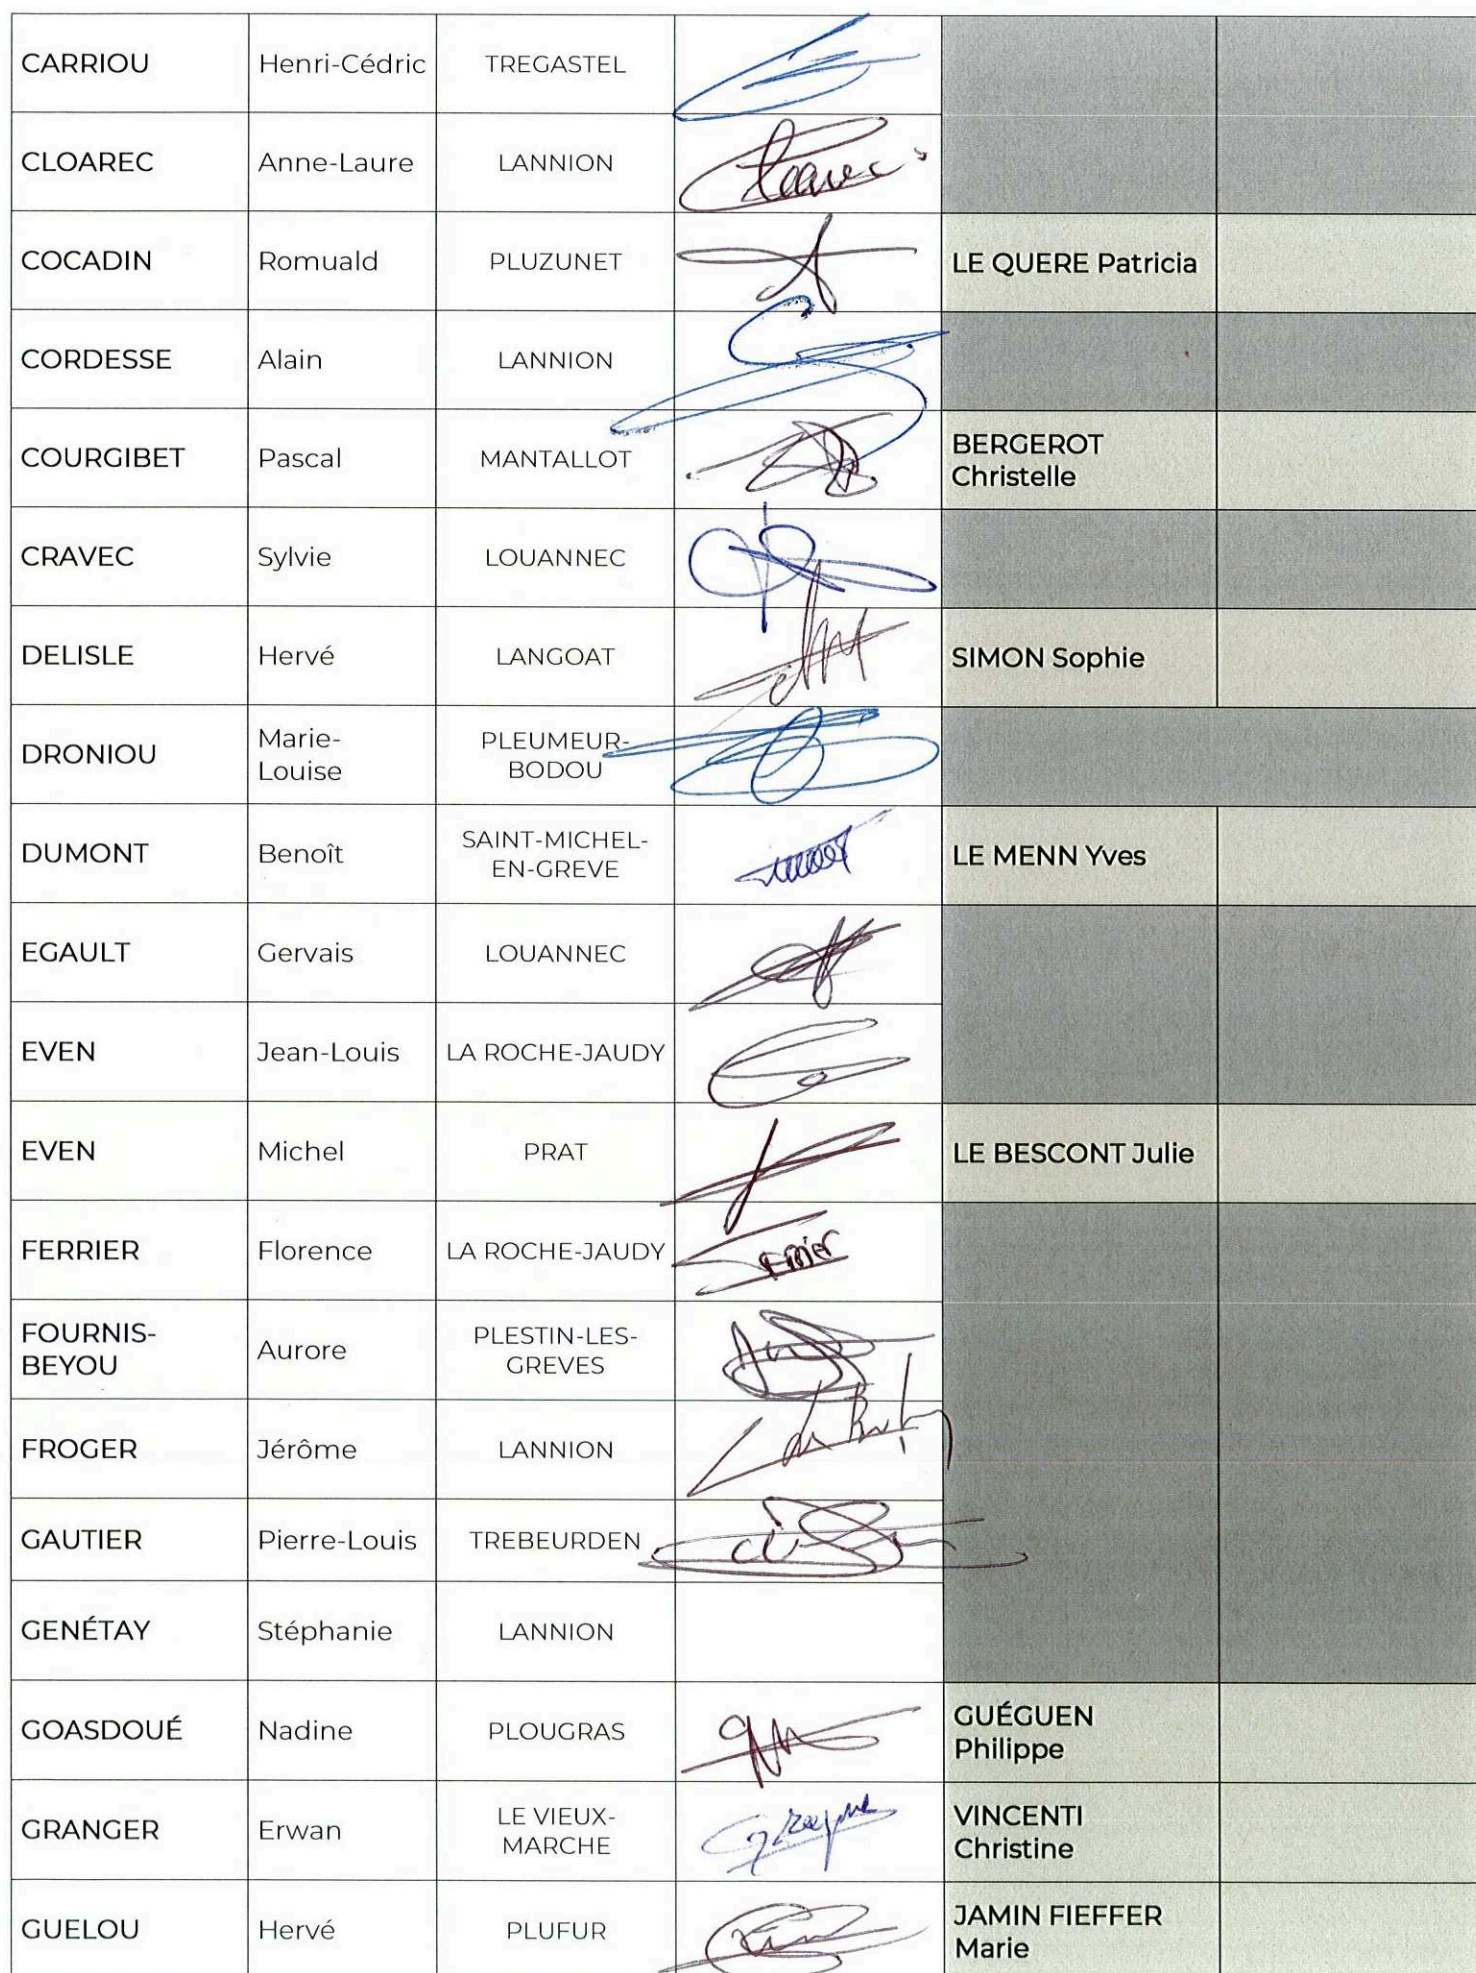 CARRIOU Henri-Cédric TREGASTEL
CLOAREC Anne-Laure LANNION
COCADIN Romuald PLUZUNET LE QUERE Patricia
CORDESSE Alain LANNION
COURGIBET Pascal MANTALLOT BERGEROT
Christelle
CRAVEC Sylvie LOUANNEC
DELISLE Hervé LANGOAT SIMON Sophie
DRONIOU Marie- PLEUMEUR-
Louise BODOU
DUMONT Benoît SAINT-MICHEL- LE MENN Yves
EN-GREVE
EGAULT Gervais LOUANNEC
EVEN Jean-Louis LA ROCHE-JAUDY
EVEN Michel PRAT LE BESCONT Julie
FERRIER Florence LA ROCHE-JAUDY
FOURNIS- Aurore PLESTIN-LES-
BEYOU GREVES
FROGER Jérôme LANNION
GAUTIER Pierre-Louis TREBEURDEN
GENÉTAY Stéphanie LANNION
GOASDOUÉ Nadine PLOUGRAS GUÉGUEN
Philippe
GRANGER Erwan LE VIEUX- VINCENTI
MARCHE Christine
GUELOU Hervé PLUFUR JAMIN FIEFFER
Marie